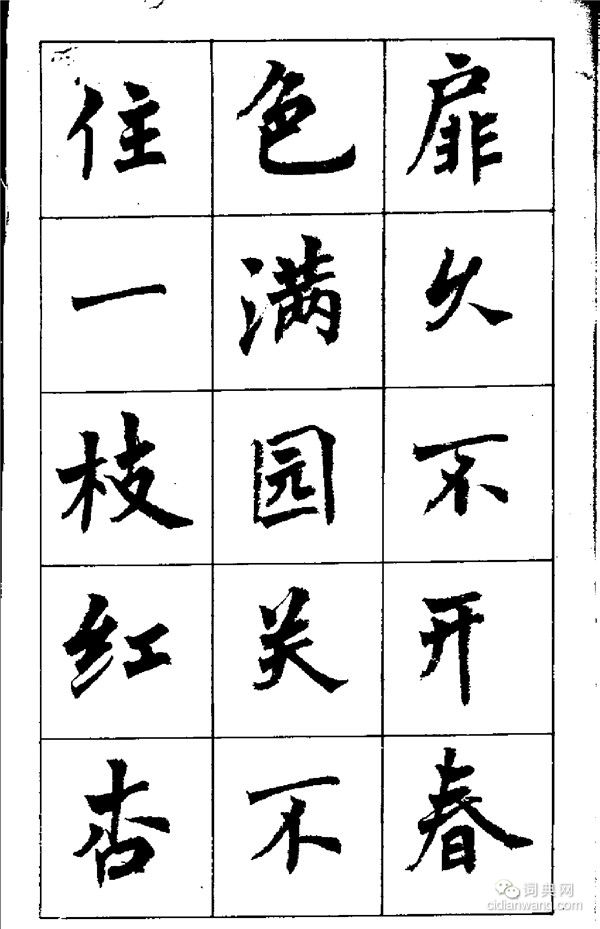 扉久不开春
色满园关不
住一枝红杏
词典网
cidianwang.com